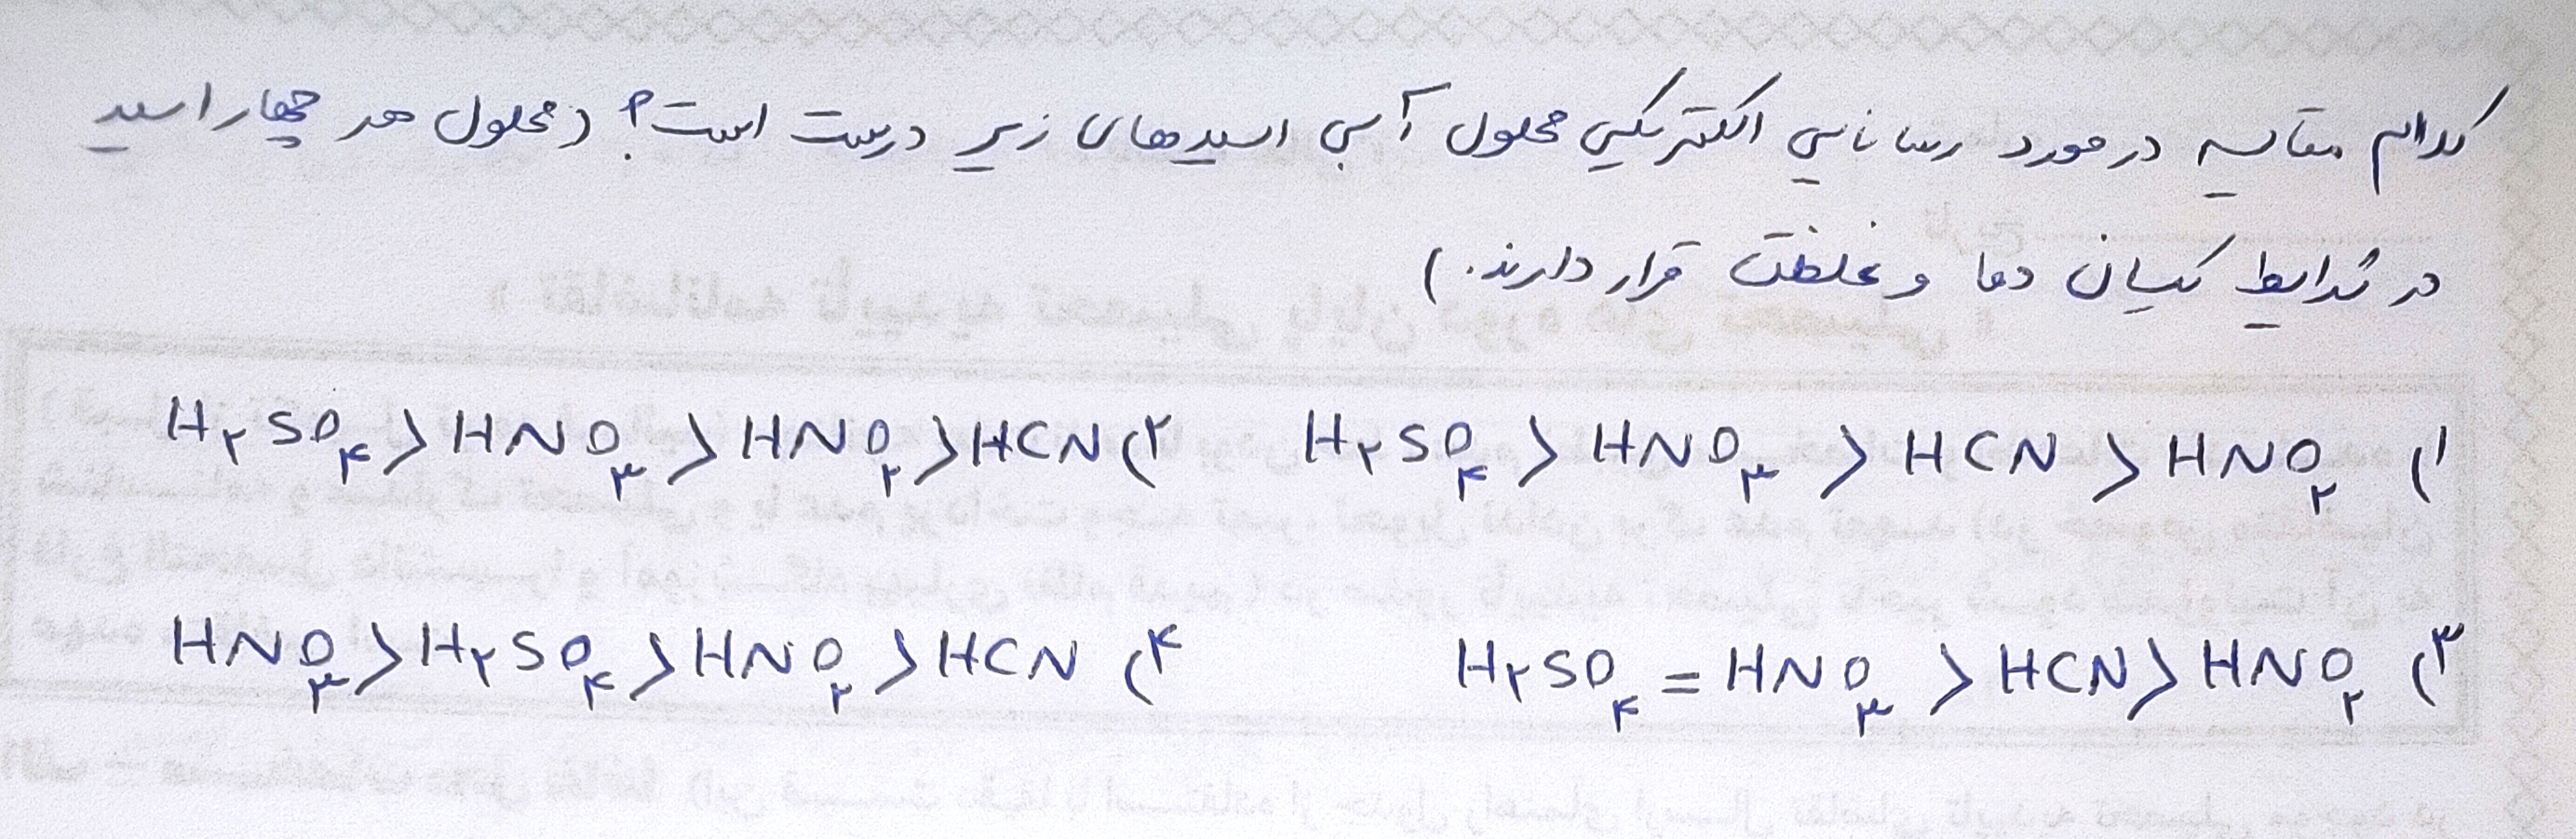 کدام مقایسه در مورد رسانایی الکتریکی محلول آبی اسیدهای زیر درست است؟ (محلول هر چهار اسید
در شرایط یکسان دما و غلظت قرار دارند.)
۱) H۲SO۴ > HNO۳ > HCN > HNO۲ ۲) H۲SO۴ > HNO۳ > HNO۲ > HCN
۳) H۲SO۴ = HNO۳ > HCN > HNO۲ ۴) HNO۳ > H۲SO۴ > HNO۲ > HCN